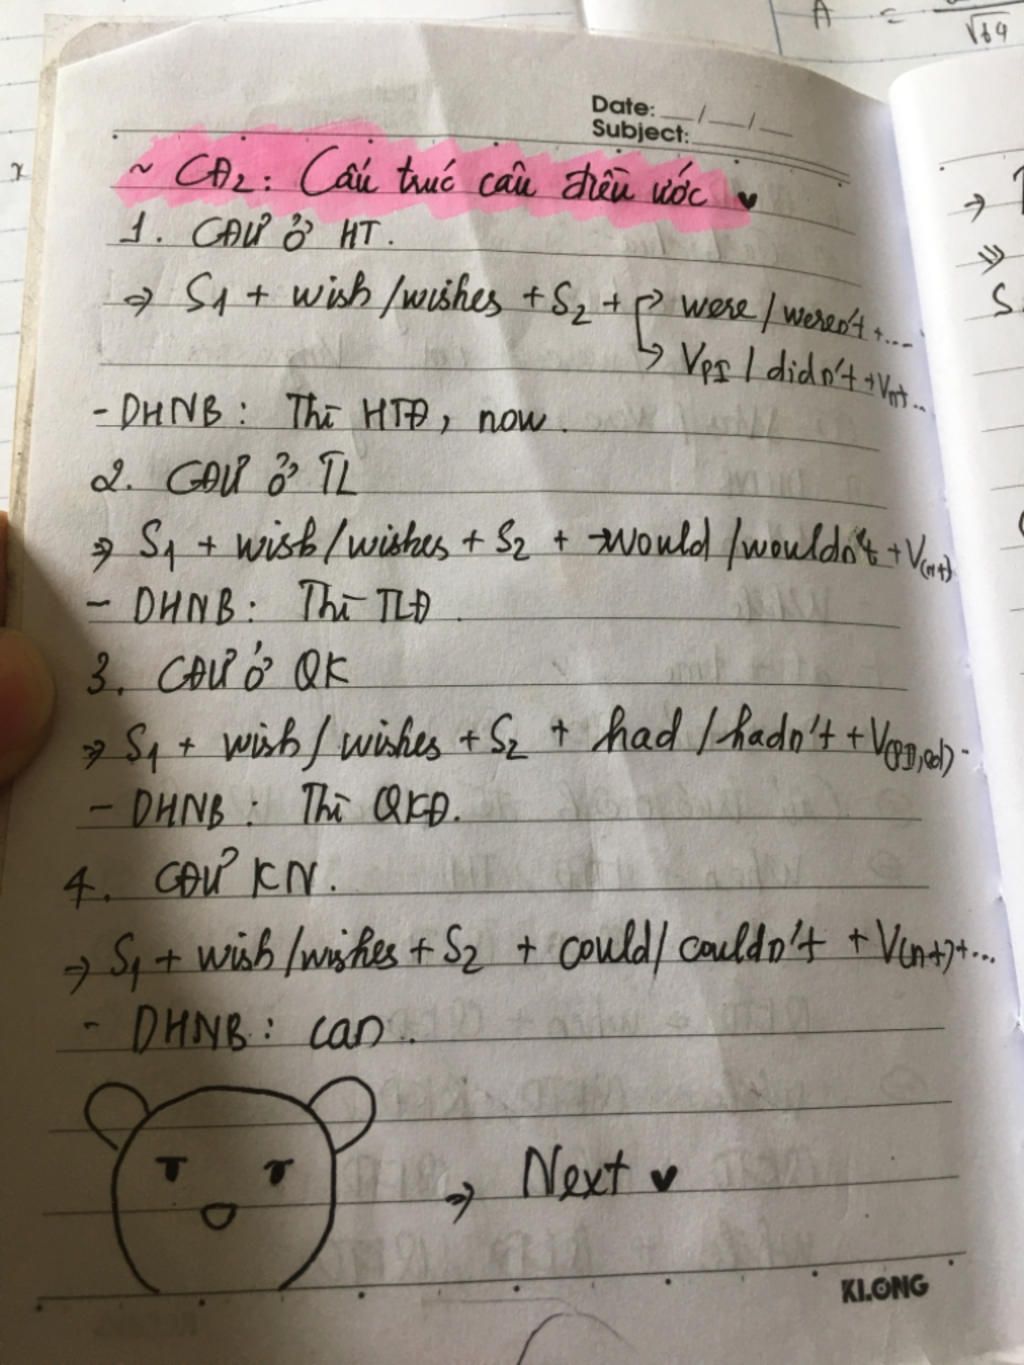 A = √64
Date: __/__/__
Subject:
~ CĐ2: Cấu trúc câu điều ước
1. CĐƯ ở HT.
⇒ S1 + wish/wishes + S2 + were / weren't + ...
VPI / didn't + Vnt ...
- DHNB: Thì HTĐ, now.
2. CĐƯ ở TL
⇒ S1 + wish/wishes + S2 + would / wouldn't + V(nt)
- DHNB: Thì TLĐ.
3. CĐƯ ở QK
⇒ S1 + wish/wishes + S2 + had / hadn't + V(PII, ed)
- DHNB: Thì QKĐ.
4. CĐƯ KN.
⇒ S1 + wish/wishes + S2 + could / couldn't + V(nt) + ...
- DHNB: can.
⇒ Next
KLONG